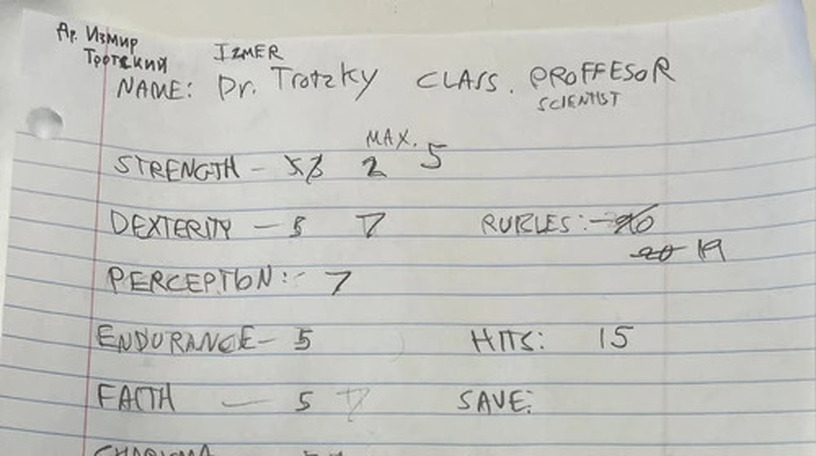 Др. Измир
Тротский IZMER
NAME: Dr. Trotzky CLASS. PROFFESOR
SCIENTIST
MAX.
STRENGTH - 2 5
DEXTERITY - 5 7 RUBLES: 19
PERCEPTION: - 7
ENDURANCE - 5 HITS: 15
FAITH - 5 7 SAVE:
CHARISMA